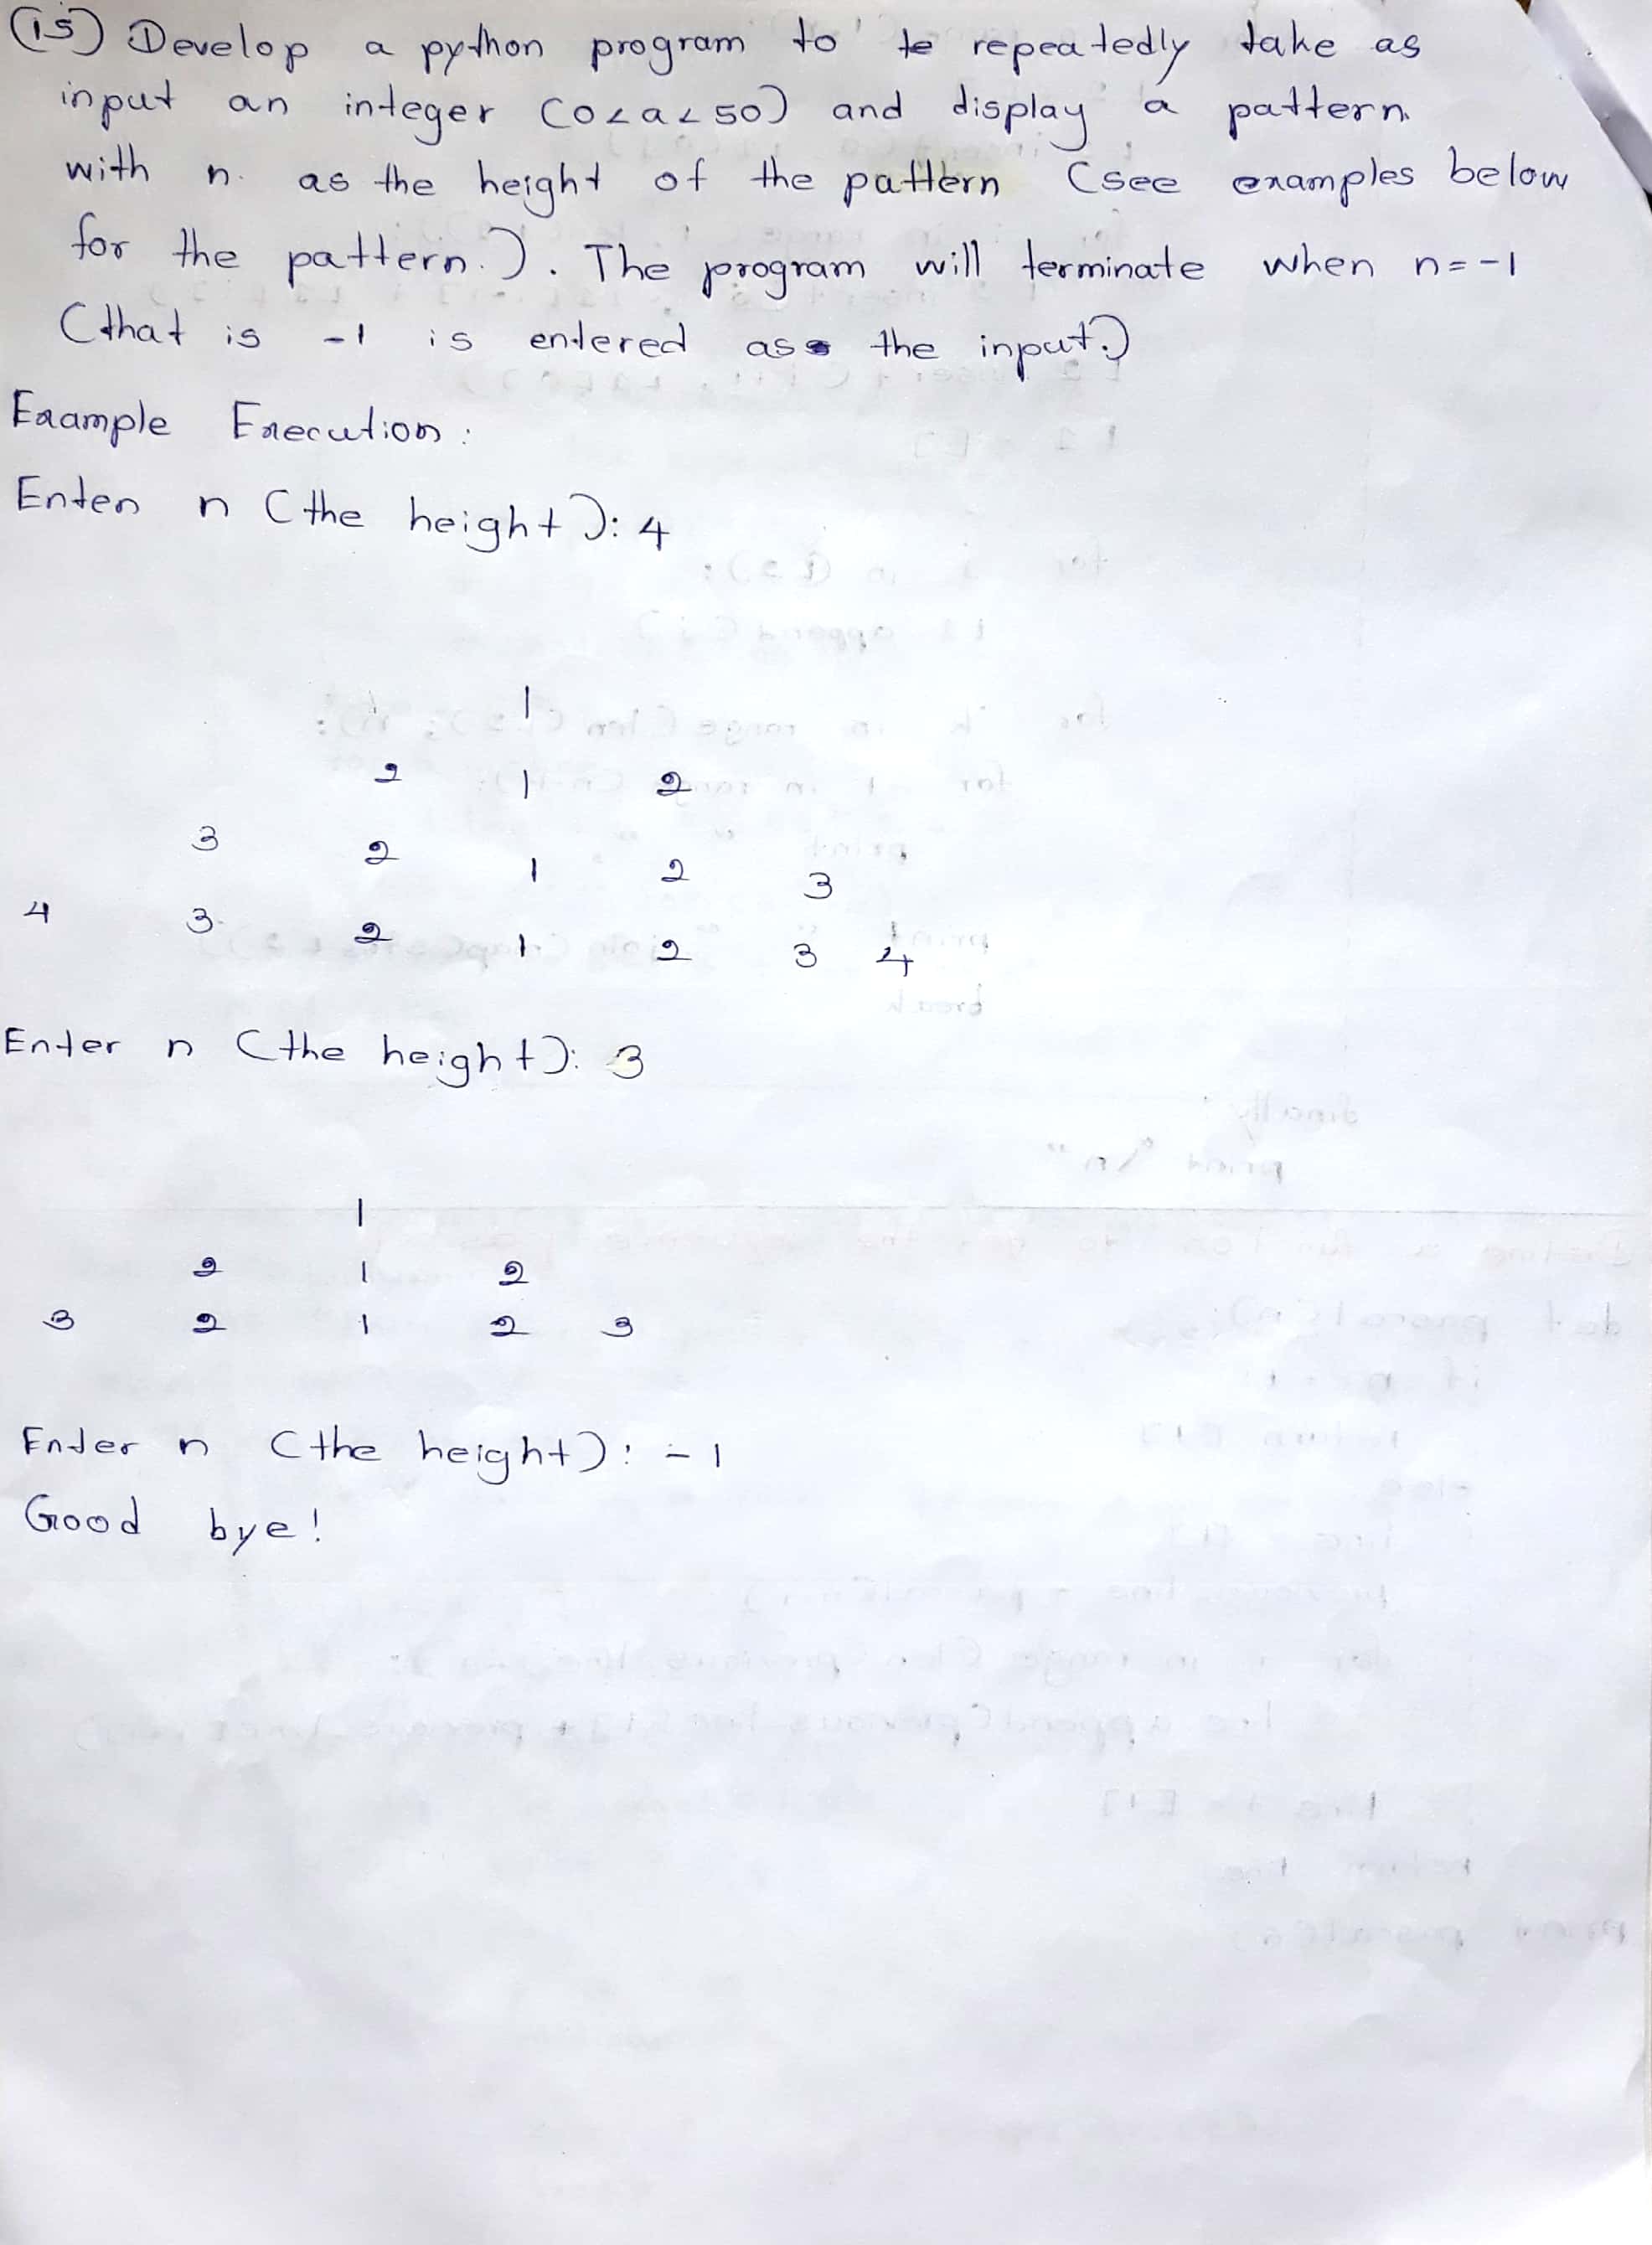 (15) Develop a python program to te repeatedly take as
input an integer (0<a<50) and display a pattern
with n. as the height of the pattern (see examples below
for the pattern.). The program will terminate when n=-1
(that is -1 is entered as the input.)
Example Execution:
Enter n (the height): 4
1
2 1 2
3 2 1 2 3
4 3 2 1 2 3 4
Enter n (the height): 3
1
2 1 2
3 2 1 2 3
Enter n (the height): -1
Good bye!